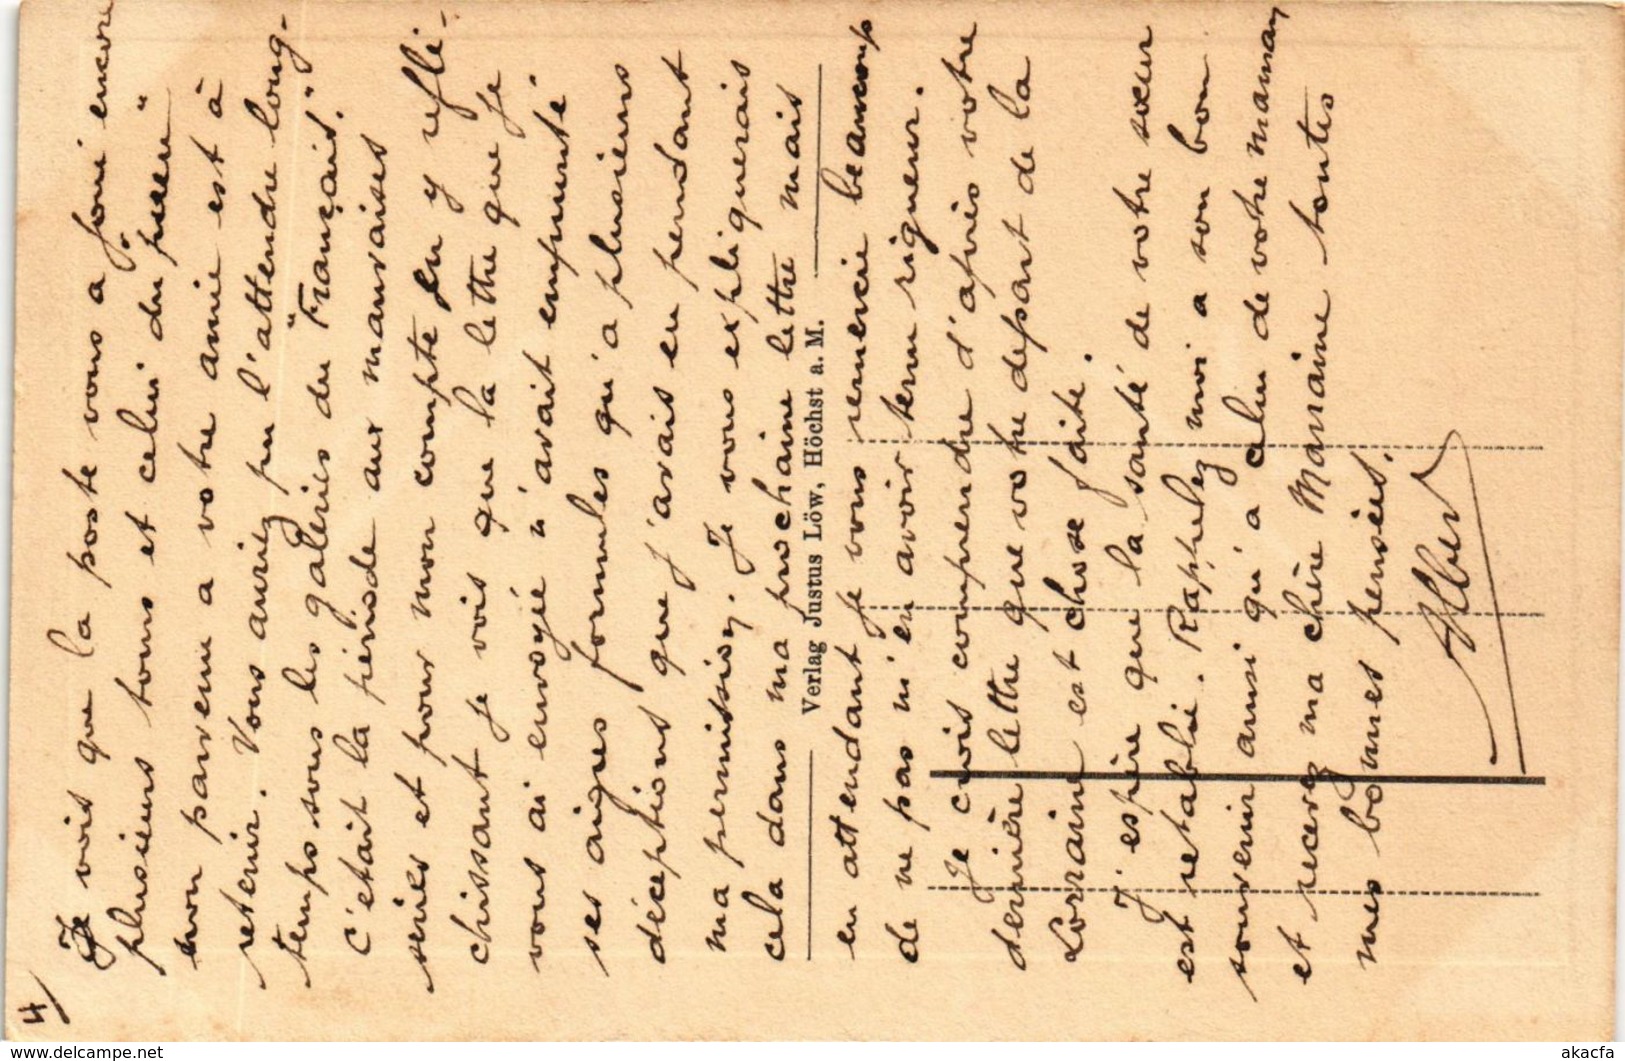 4/
Je vois que la poste vous a joui encore
plusieurs tours et celui du "pneu"
non parvenu a votre amie est à
retenir. Vous auriez pu l'attendre long-
temps sous les galeries du "Français."
C'etait la période aux mauvaises
séries et pour mon compte en y réflé-
chissant je vois que la lettre que je
vous ai envoyée n'avait emprunté
ses aigres formules qu'a plusieurs
déceptions que j'avais eu pendant
ma permission. Je vous expliquerais
cela dans ma prochaine lettre mais
Verlag Justus Löw, Höchst a. M.
en attendant je vous remercie beaucoup
de ne pas m'en avoir tenu rigueur.
Je crois comprendre d'après votre
dernière lettre que votre depart de la
Lorraine est chose faite.
J'espère que la santé de votre sœur
est retablie. Rappelez moi a son bon
souvenir ainsi qu'a celui de votre maman
et recevez ma chère Marraine toutes
mes bonnes pensées.
Albert
akacfa
delcampe.net